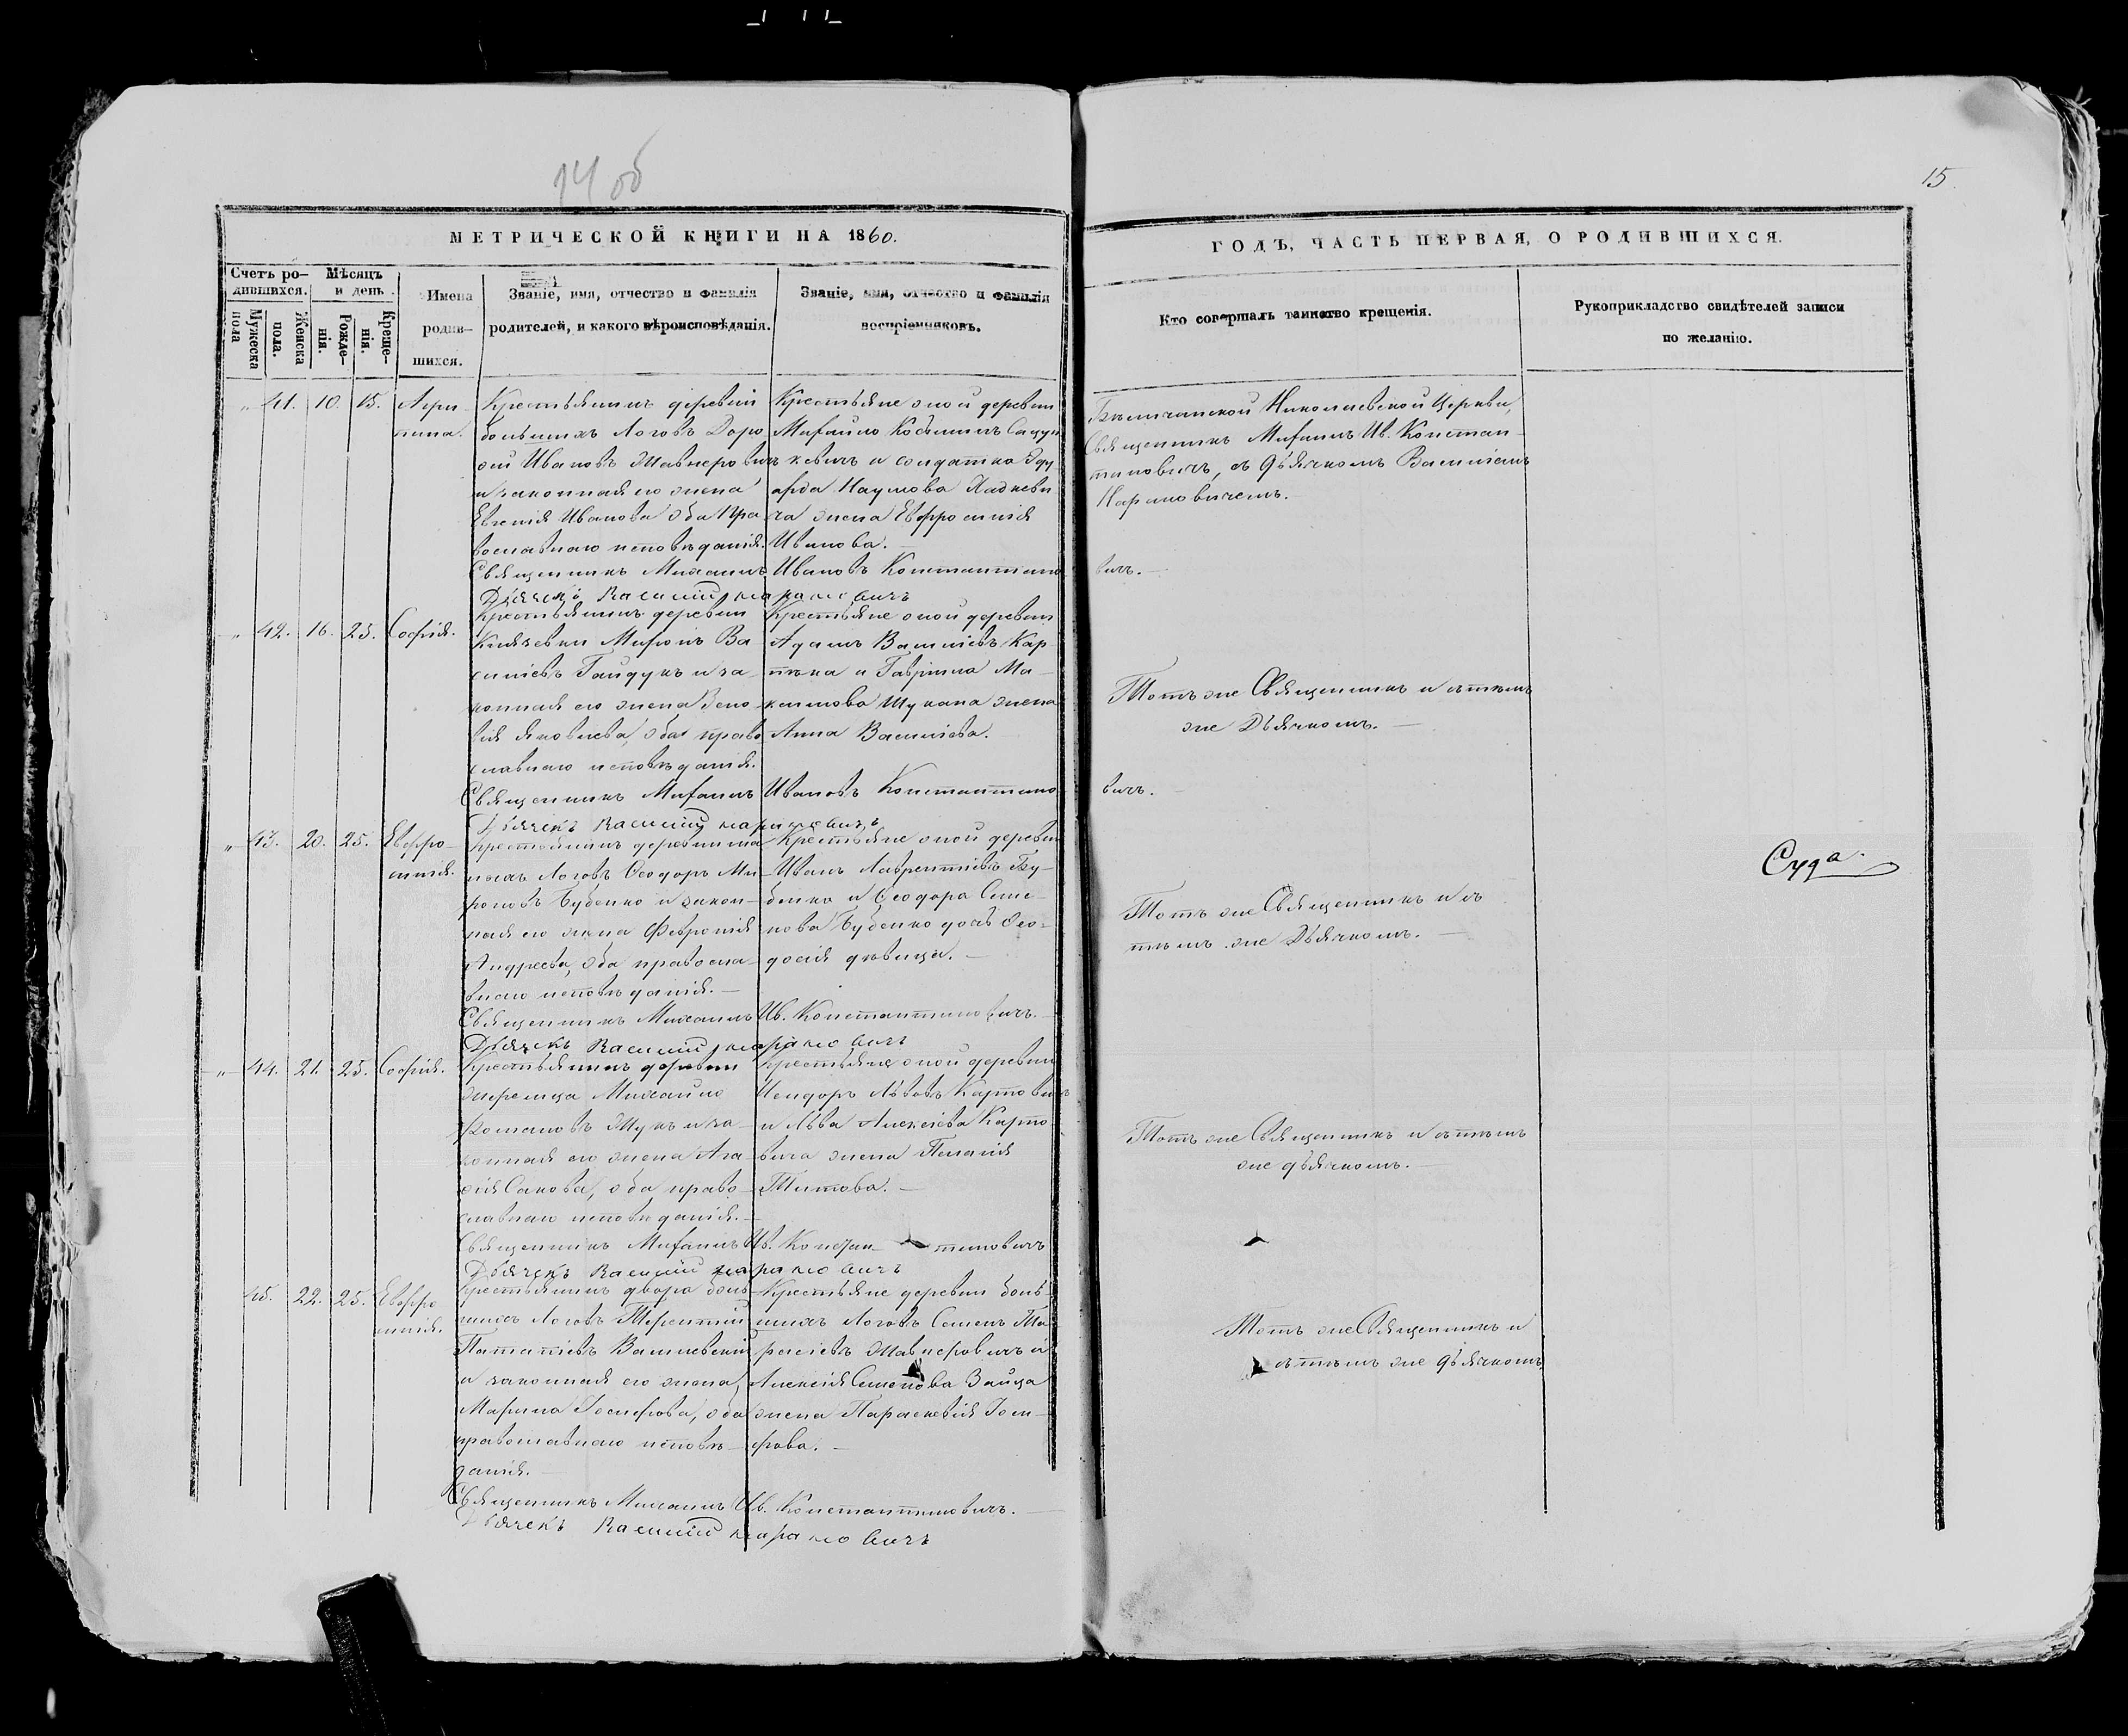 14 об
15.
МЕТРИЧЕСКОЙ КНИГИ НА 1860.
ГОДЪ, ЧАСТЬ ПЕРВАЯ, О РОДИВШИХСЯ.
Счетъ ро-
дившихся.
Мужеска
пола
Женска
пола.
Мѣсяцъ
и день
Рожде-
нія.
Креще-
нія.
Имена
родив-
шихся.
Званіе, имя, отчество и фамилія
родителей, и какого вѣроисповѣданія.
Званіе, имя, отчество и фамилія
воспріемниковъ.
Кто совершалъ таинство крещенія.
Рукоприкладство свидѣтелей записи
по желанію.
„ 41. 10. 15. Агри-
пина.
Крестьянинъ деревни
большихъ Логовъ Доро
фей Ивановъ
и законная его жена
Евгенія Иванова оба Пра
вославнаго исповѣданія.
Крестьяне оной деревни
Михаило Косьминъ
кевичъ и солдатка Эду
арда Наумова
ча жена Евфросинія
Иванова.
Николаевской Церкви,
Священникъ Михаилъ Ив. Констан
тиновичъ, съ дьячкомъ Василіемъ
Священникъ Михаилъ Ивановъ Константино
вичъ.
Дьячекъ Василій
„ 42. 16. 25. Софія.
Крестьянинъ деревни
Князевки Миронъ Ва
силіевъ Гайдукъ и за-
конная его жена Зено
вія Яковлева, оба право
славнаго исповѣданія.
Крестьяне оной деревни
Адамъ Василіевъ Кар
пѣка и Гавріила Ма-
ксимова Шукана жена
Анна Василіева.
Тотъ же Священникъ и съ тѣмъ
же Дьячкомъ.
Священникъ Михаилъ Ивановъ Константино
вичъ.
Дьячекъ Василій
„ 43. 20. 25. Евфро-
синія.
Крестьянинъ деревни ма
лыхъ Логовъ Ѳеодоръ Ми-
роновъ Бубенко и закон-
ная его жена Февронія
Андреева, оба правосла-
внаго исповѣданія.
Крестьяне оной деревни
Иванъ Лаврентіевъ Бу-
бенко и Ѳеодора Семе-
нова Бубенко дочь Ѳео-
досія дѣвица.
Тотъ же Священникъ и съ
тѣмъ же Дьячкомъ.
Суда.
Священникъ Михаилъ Ив. Константиновичъ.
Дьячекъ Василій
„ 44. 21. 25. Софія.
Крестьянинъ деревни
Михайло
Романовъ Жукъ и за-
конная его жена Ага-
оба право
славнаго исповѣданія.
Крестьяне оной деревни
Исидоръ Львовъ Картович
и Льва Алексіева Карто
вича жена Пелагія
Титова.
Тотъ же Священникъ и съ тѣмъ
же дьячкомъ.
Священникъ Михаилъ Ив. Констан-тиновичъ
Дьячекъ Василій
45. 22. 25. Евфро
синія.
Крестьянинъ двора боль-
шихъ Логовъ Терентій
Василевскій
и законная его жена,
Марина Іосифова, оба
православнаго исповѣ-
данія.
Крестьяне деревни боль-
шихъ Логовъ Семенъ Та
расіевъ и
Алексія Семенова Зайца
жена Параскевія Іоси-
фова.
Тотъ же Священникъ и
съ тѣмъ же дьячкомъ
Священникъ Михаилъ Ив. Константиновичъ.
Дьячекъ Василій